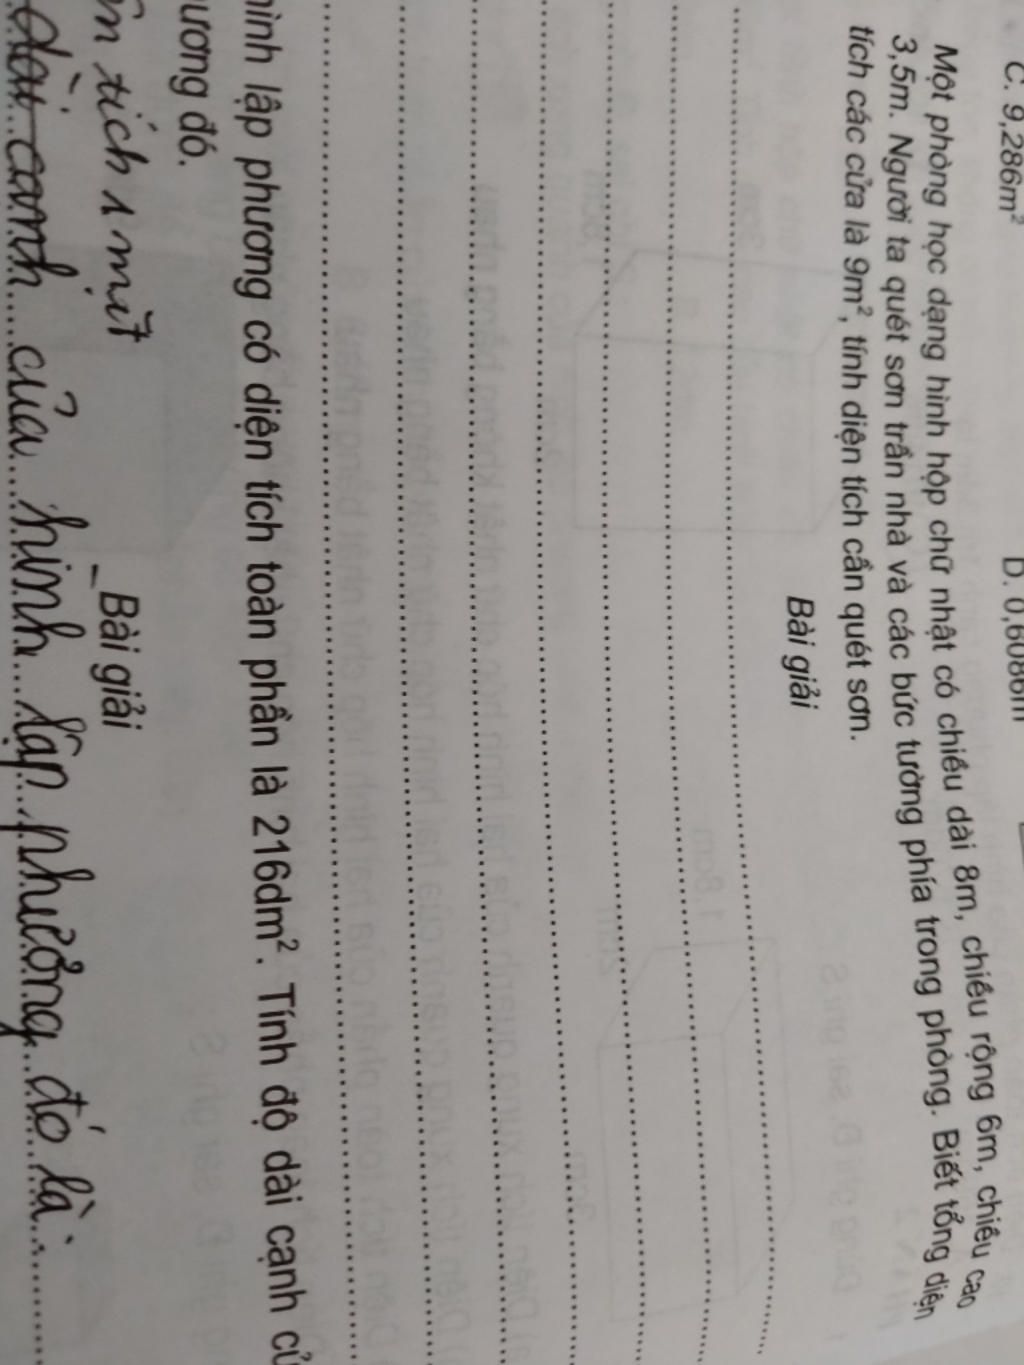 C. 9,286m²
Một phòng học dạng hình hộp chữ nhật có chiều dài 8m, chiều rộng 6m, chiều cao
3,5m. Người ta quét sơn trần nhà và các bức tường phía trong phòng. Biết tổng diện
tích các cửa là 9m², tính diện tích cần quét sơn.
Bài giải
lập phương có diện tích toàn phần là 216dm². Tính độ dài cạnh
đó.
Bài giải
tích 1 mặt
dài cạnh của hình lập phương đó là